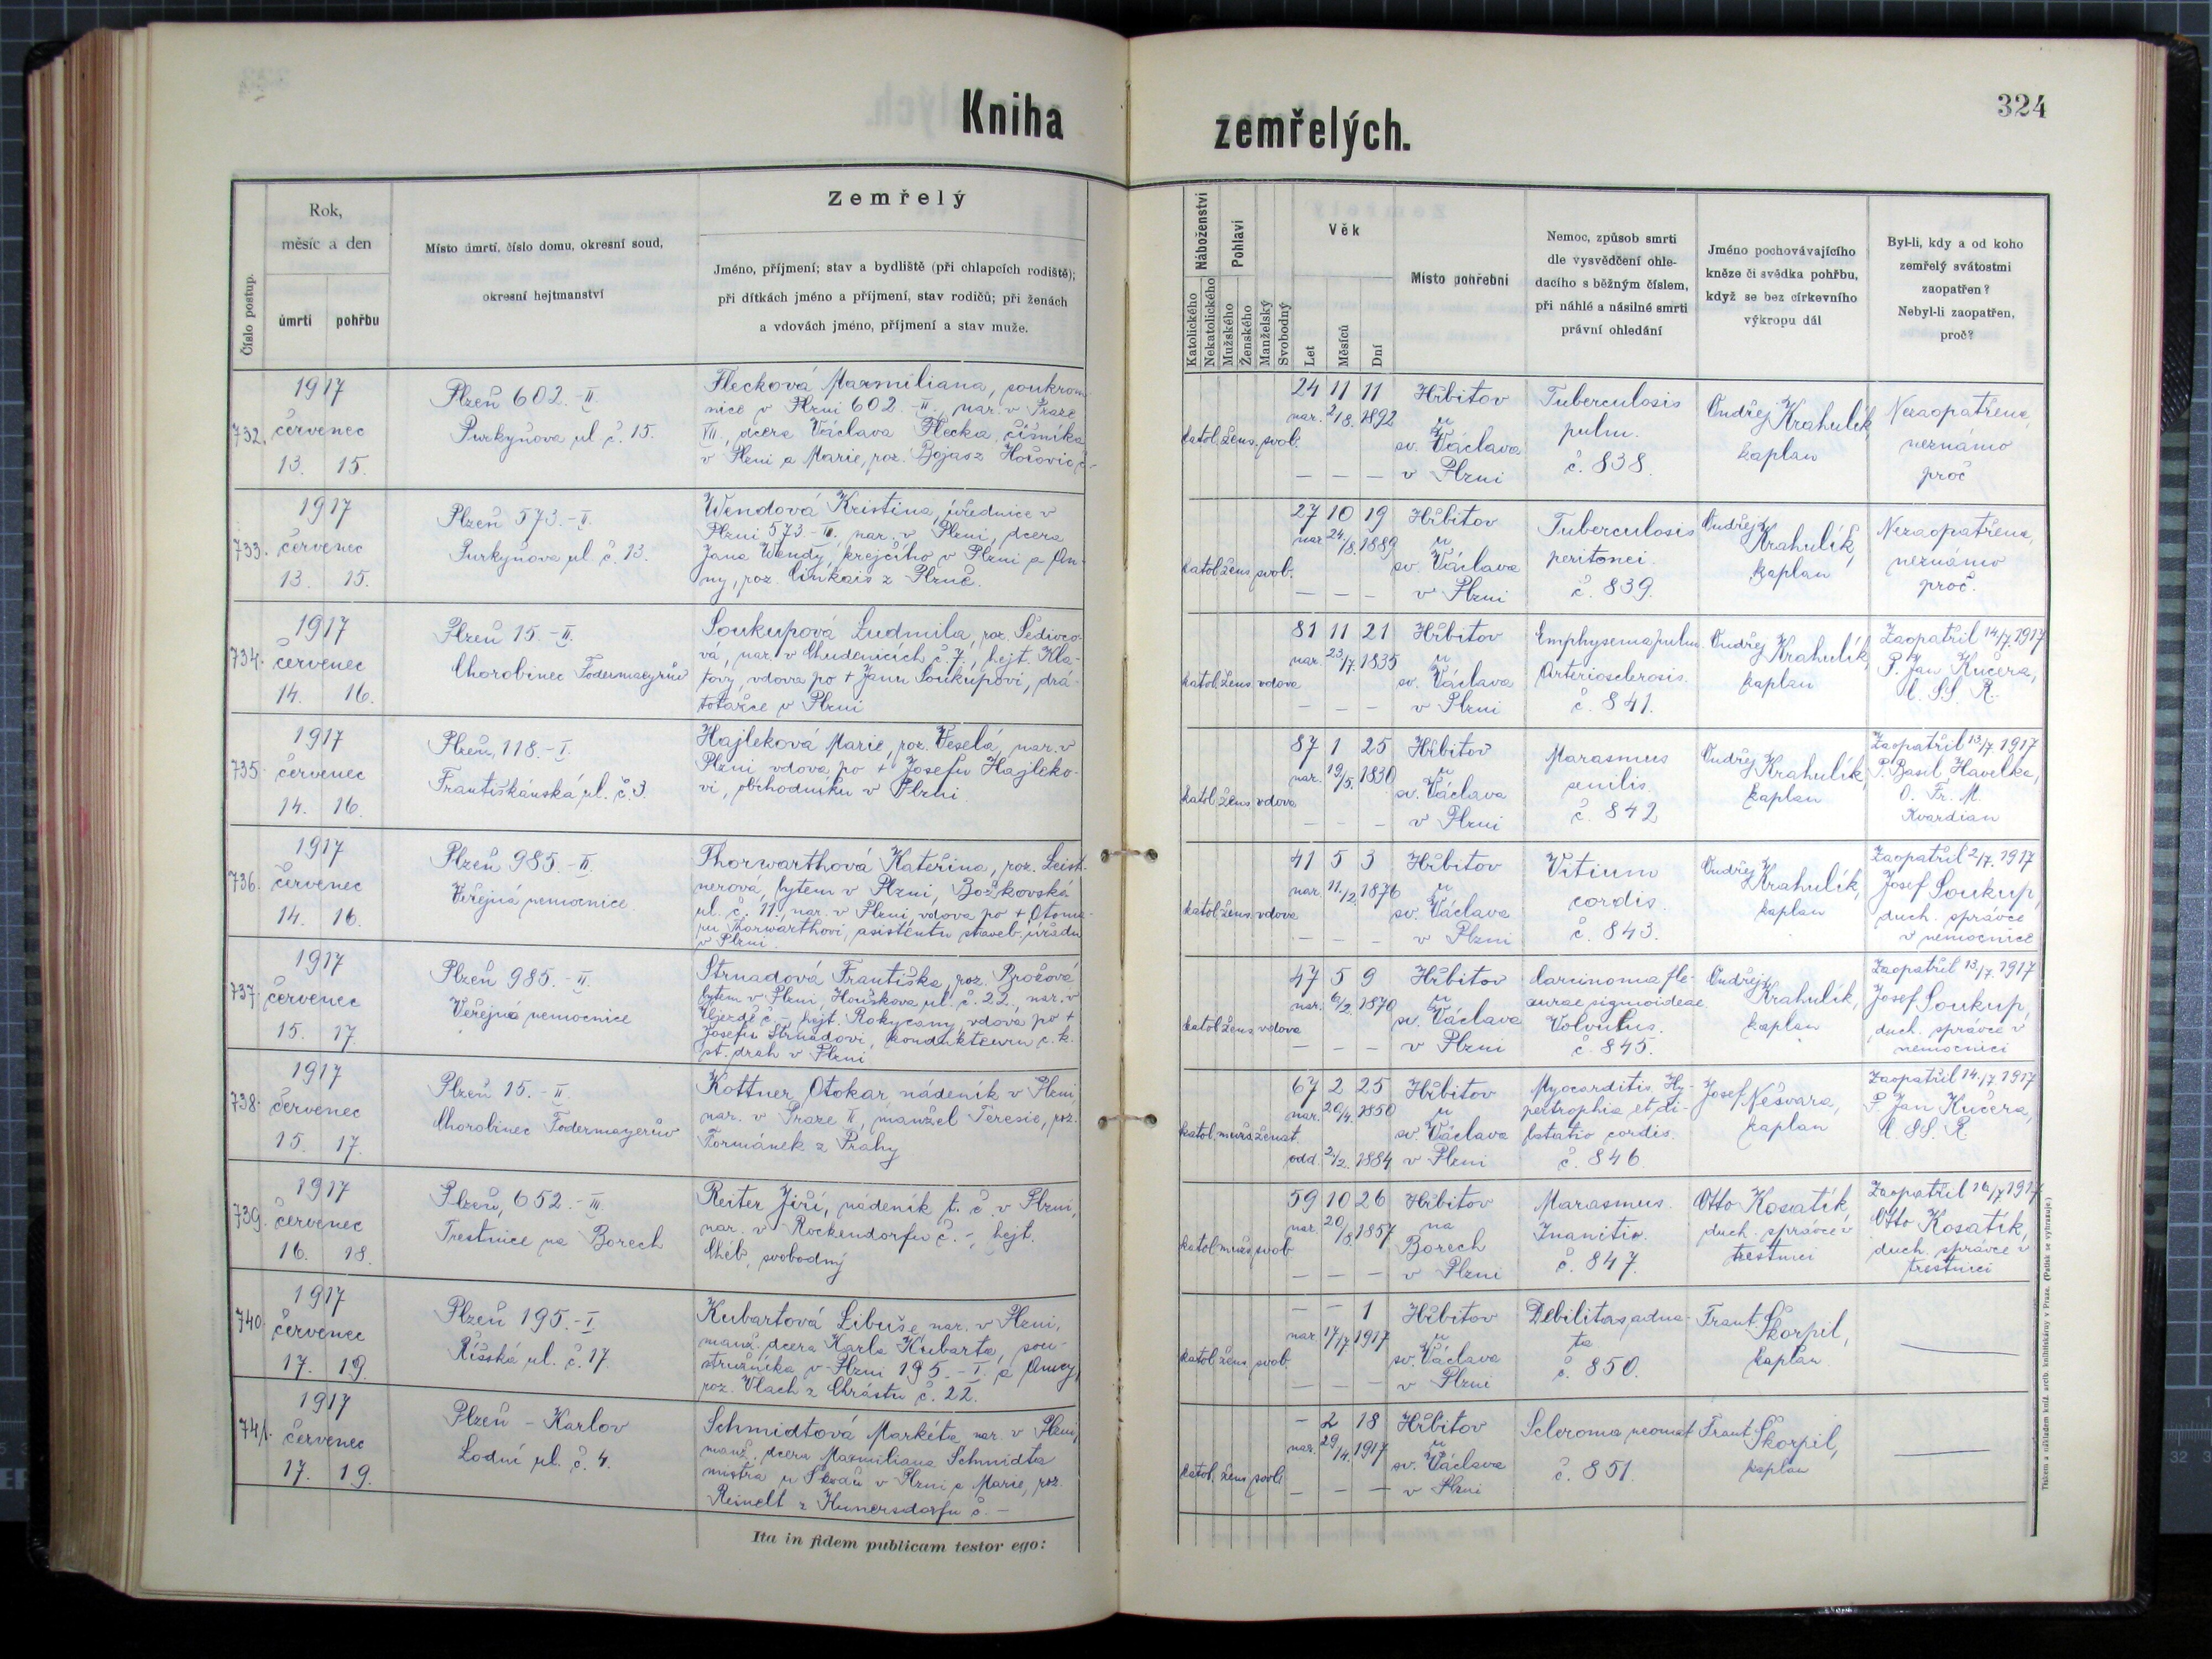 Kniha
zemřelých.
324
Číslo postup.
Rok,
měsíc a den
úmrtí
pohřbu
Místo úmrtí, číslo domu, okresní soud,
okresní hejtmanství
Zemřelý
Jméno, příjmení; stav a bydliště (při chlapcích rodiště);
při dítkách jméno a příjmení, stav rodičů; při ženách
a vdovách jméno, příjmení a stav muže.
Náboženství
Katolického
Nekatolického
Pohlaví
Mužského
Ženského
Manželský
Svobodný
Věk
Let
Měsíců
Dní
Místo pohřební
Nemoc, způsob smrti
dle vysvědčení ohle-
dacího s běžným číslem,
při náhlé a násilné smrti
právní ohledání
Jméno pochovávajícího
kněze či svědka pohřbu,
když se bez církevního
výkropu dál
Byl-li, kdy a od koho
zemřelý svátostmi
zaopatřen?
Nebyl-li zaopatřen,
proč?
732.
1917
červenec
13. 15.
Plzeň 602.-II.
Purkyňova ul. č. 15.
Flecková Maxmiliana, soukrom-
nice v Plzni 602.-II., nar. v Praze
VII., dcera Václava Flecka, číšníka
v Plzni a Marie, roz. Bojasz Hořovic, č.-
katol. žens. svob.
24 11 11
nar. 2/8. 1892
— — —
Hřbitov
u
sv. Václava
v Plzni
Tuberculosis
pulm.
č. 838.
Ondřej Krahulík,
kaplan
Nezaopatřena,
neznámo
proč
733.
1917
červenec
13. 15.
Plzeň 573.-II.
Purkyňova ul. č. 13.
Wendová Kristina, úřednice v
Plzni 573.-II., nar. v Plzni, dcera
Jana Wendy, krejčího v Plzni a An-
ny, roz. z Plzně.
katol. žens. svob.
27 10 19
nar. 24/8. 1889
— — —
Hřbitov
u
sv. Václava
v Plzni
Tuberculosis
peritonei.
č. 839.
Ondřej
Krahulík,
kaplan
Nezaopatřena,
neznámo
proč.
734.
1917
červenec
14. 16.
Plzeň 15.-II.
Chorobinec Fodermayrův
Soukupová Ludmila, roz. Šedivco-
vá, nar. v Chudenicích č. 7., hejt. Kla-
tovy, vdova po + Janu Soukupovi, drá-
totažce v Plzni
katol. žens. vdova
81 11 21
nar. 23/7. 1835
— — —
Hřbitov
u
sv. Václava
v Plzni
Emphysema pulm.
Arteriosclerosis.
č. 841.
Ondřej
Krahulík,
kaplan
Zaopatřil 14/7. 1917
P. Jan Kučera,
C. SS. R.
735.
1917
červenec
14. 16.
Plzeň, 118.-I.
Františkánská ul. č. 3
Hajleková Marie, roz. Veselá, nar. v
Plzni vdova po + Josefu Hajleko-
vi, obchodníku v Plzni
katol. žens. vdova
87 1 25
nar. 19/5. 1830
— — —
Hřbitov
u
sv. Václava
v Plzni
Marasmus
senilis.
č. 842
Ondřej
Krahulík,
kaplan
Zaopatřil 13/7. 1917
P. Basil Havelka,
O. Fr. M.
Kvardian
736.
1917
červenec
14. 16.
Plzeň 985.-II.
Veřejná nemocnice.
Thorwarthová Kateřina, roz. Leist-
nerová, bytem v Plzni, Božkovská
ul. č. 11., nar. v Plzni, vdova po + Otoma-
ru Thorwarthovi, asistentu staveb. úřadu
v Plzni.
katol. žens. vdova
41 5 3
nar. 11./2. 1876
— — —
Hřbitov
u
sv. Václava
v Plzni
Vitium
cordis.
č. 843.
Ondřej
Krahulík,
kaplan
Zaopatřil 2/7. 1917
Josef Soukup,
duch. správce
v nemocnice
737.
1917
červenec
15. 17.
Plzeň 985.-II.
Veřejná nemocnice
Strnadová Františka, roz. Brožová
bytem v Plzni, Houškova ul. č. 22., nar. v
Újezdě č. - hejt. Rokycany, vdova po +
Josefu Strnadovi, kondukteuru c. k.
st. drah v Plzni
katol. žens. vdova
47 5 9
nar. 6/2. 1870
— — —
Hřbitov
u
sv. Václava
v Plzni
Carcinoma fle-
xurae sigmoideae
Volvulus.
č. 845.
Ondřej
Krahulík,
kaplan
Zaopatřil 13/7. 1917
Josef Soukup,
duch. správce v
nemocnici
738.
1917
červenec
15. 17.
Plzeň 15.-II.
Chorobinec Fodermayerův
Kottner Otokar nádeník v Plzni
nar. v Praze II, manžel Teresie, roz.
Formánek z Prahy
katol. mužs. ženat.
67 2 25
nar. 20/4. 1850
odd. 2/2. 1884
Hřbitov
u
sv. Václava
v Plzni
Myocarditis. Hy-
pertrophia et di-
latatio cordis.
č. 846
Josef Nešvara,
kaplan
Zaopatřil 14./7. 1917
P. Jan Kučera,
C. SS. R.
739.
1917
červenec
16. 18.
Plzeň, 652.-III.
Trestnice na Borech
Reiter Jiří, nádeník t. č. v Plzni,
nar. v Rockendorfu č. -, hejt.
Cheb, svobodný
katol. mužs. svob.
59 10 26
nar. 20/8. 1857
— — —
Hřbitov
na
Borech
v Plzni
Marasmus.
Inanitio.
č. 847.
Otto Kosatík,
duch. správce v
trestnici
Zaopatřil 16/7 1917
Otto Kosatík,
duch. správce v
trestnici
740.
1917
červenec
17. 19.
Plzeň 195.-I.
Říšská ul. č. 17.
Kubartová Libuše, nar. v Plzni,
manž. dcera Karla Kubarta, sou-
stružníka v Plzni 195.-I. a Anny,
roz. Vlach z Chrástu č. 22.
katol. žens. svob.
— — 1
nar. 17/7 1917
— — —
Hřbitov
u
sv. Václava
v Plzni
Debilitas adna-
ta
č. 850.
Frant. Škorpil,
kaplan
—
741.
1917
červenec
17. 19.
Plzeň - Karlov
Lodní ul. č. 4.
Schmidtová Markéta nar. v Plzni,
manž. dcera Maxmiliana Schmidta
mistra u Škodů v Plzni a Marie, roz.
Reinelt z Hunersdorfu č. -
katol. žens. svob.
- 2 18
nar. 29/4. 1917
— — —
Hřbitov
u
sv. Václava
v Plzni
Scleroma neonat.
č. 851.
Frant. Škorpil,
kaplan
—
Ita in fidem publicam testor ego:
Tiskem a nákladem kníž. arcib. knihtiskárny v Praze. (Patisk se vyhrazuje.)